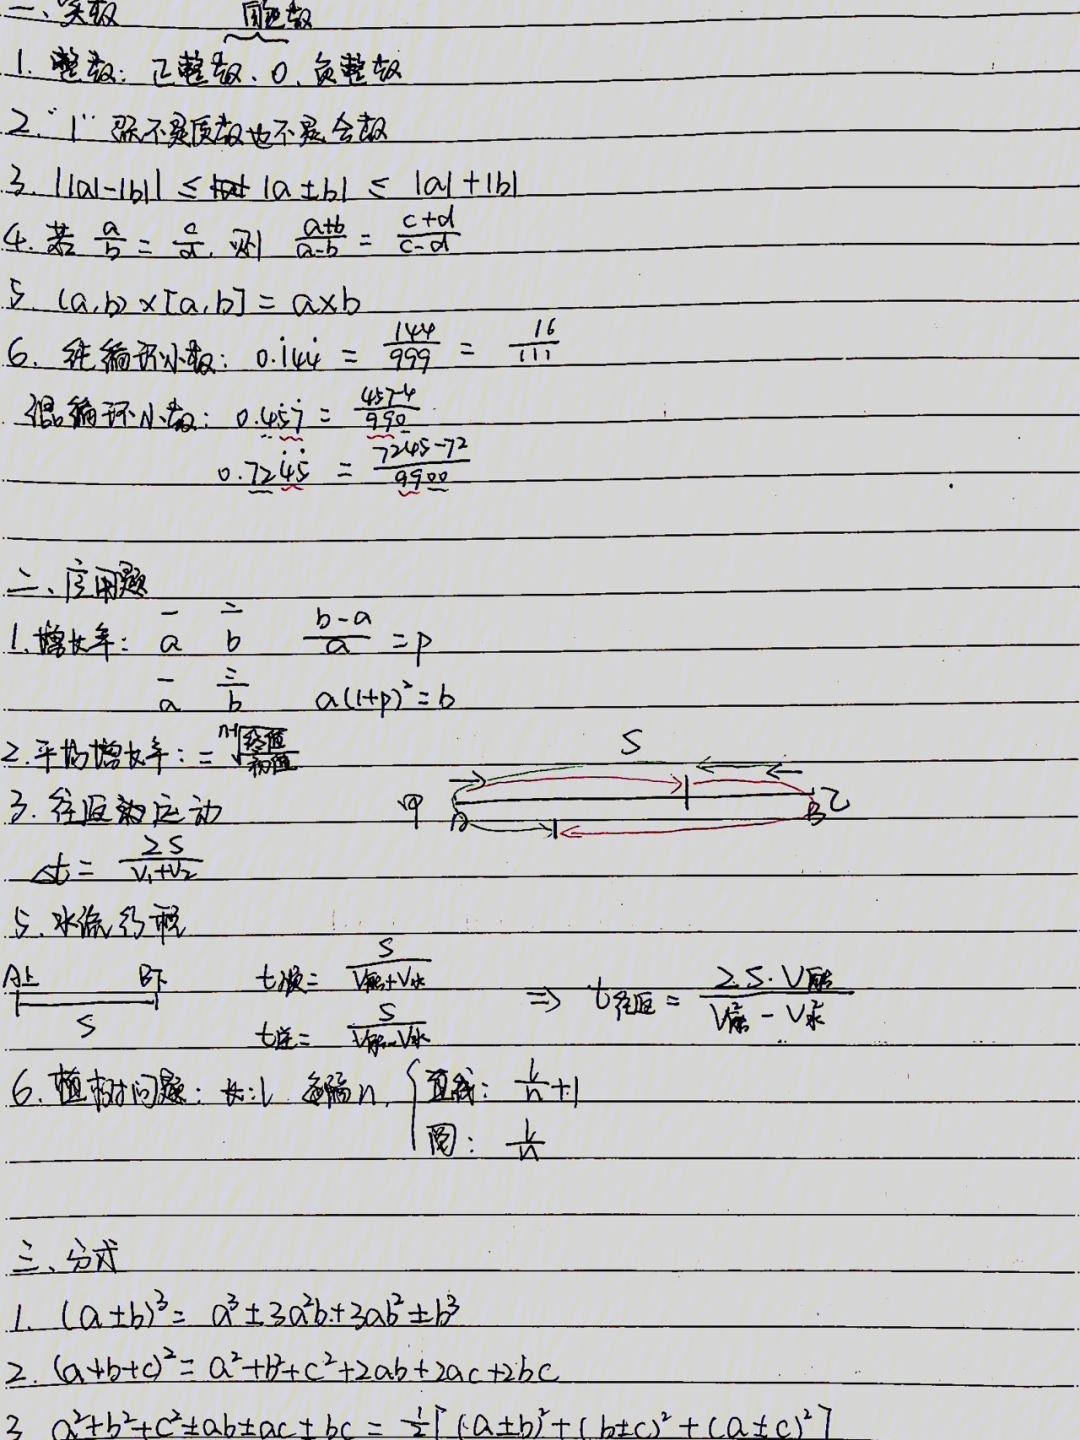 一、实数
自然数
1. 整数：正整数、0、负整数
2. "1" 既不是质数也不是合数
3. ||a|-|b|| ≤ |a±b| ≤ |a|+|b|
4. 若 a/b = c/d, 则 (a+b)/(a-b) = (c+d)/(c-d)
5. (a,b)×[a,b] = a×b
6. 纯循环小数：0.1̇44̇ = 144/999 = 16/111
混循环小数：0.45̇7̇ = (457-4)/990
0.724̇5̇ = (7245-72)/9900
二、应用题
1. 增长率：一 a 二 b (b-a)/a = p
一 a 三 b a(1+p)² = b
2. 平均增长率：= ⁿ⁻¹√(终值/初值)
S
3. 往返运动 甲 A B 乙
Δt = 2S/(V₁+V₂)
5. 水流行程
A上 B下 S t顺 = S/(V船+V水) ⇒ t往返 = 2S·V船/(V²船 - V²水)
t逆 = S/(V船-V水)
6. 植树问题：长：L 每隔n, { 直线：L/n+1
圆：L/n
三、分式
1. (a±b)³ = a³±3a²b+3ab²±b³
2. (a+b+c)² = a²+b²+c²+2ab+2ac+2bc
3. a²+b²+c²±ab±ac±bc = 1/2[(a±b)²+(b±c)²+(a±c)²]